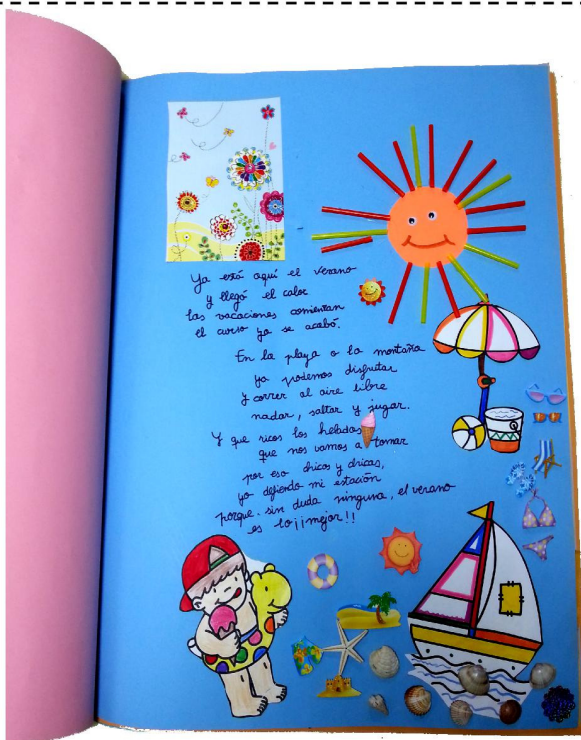 Ya está aquí el verano
y llegó el calor
las vacaciones comienzan
el curso ya se acabó.
En la playa o la montaña
ya podemos disfrutar
y correr al aire libre
nadar, saltar y jugar.
Y que ricos los helados
que nos vamos a tomar
por eso chicos y chicas,
yo defiendo mi estación
porque. sin duda ninguna, el verano
es lo ¡¡mejor!!